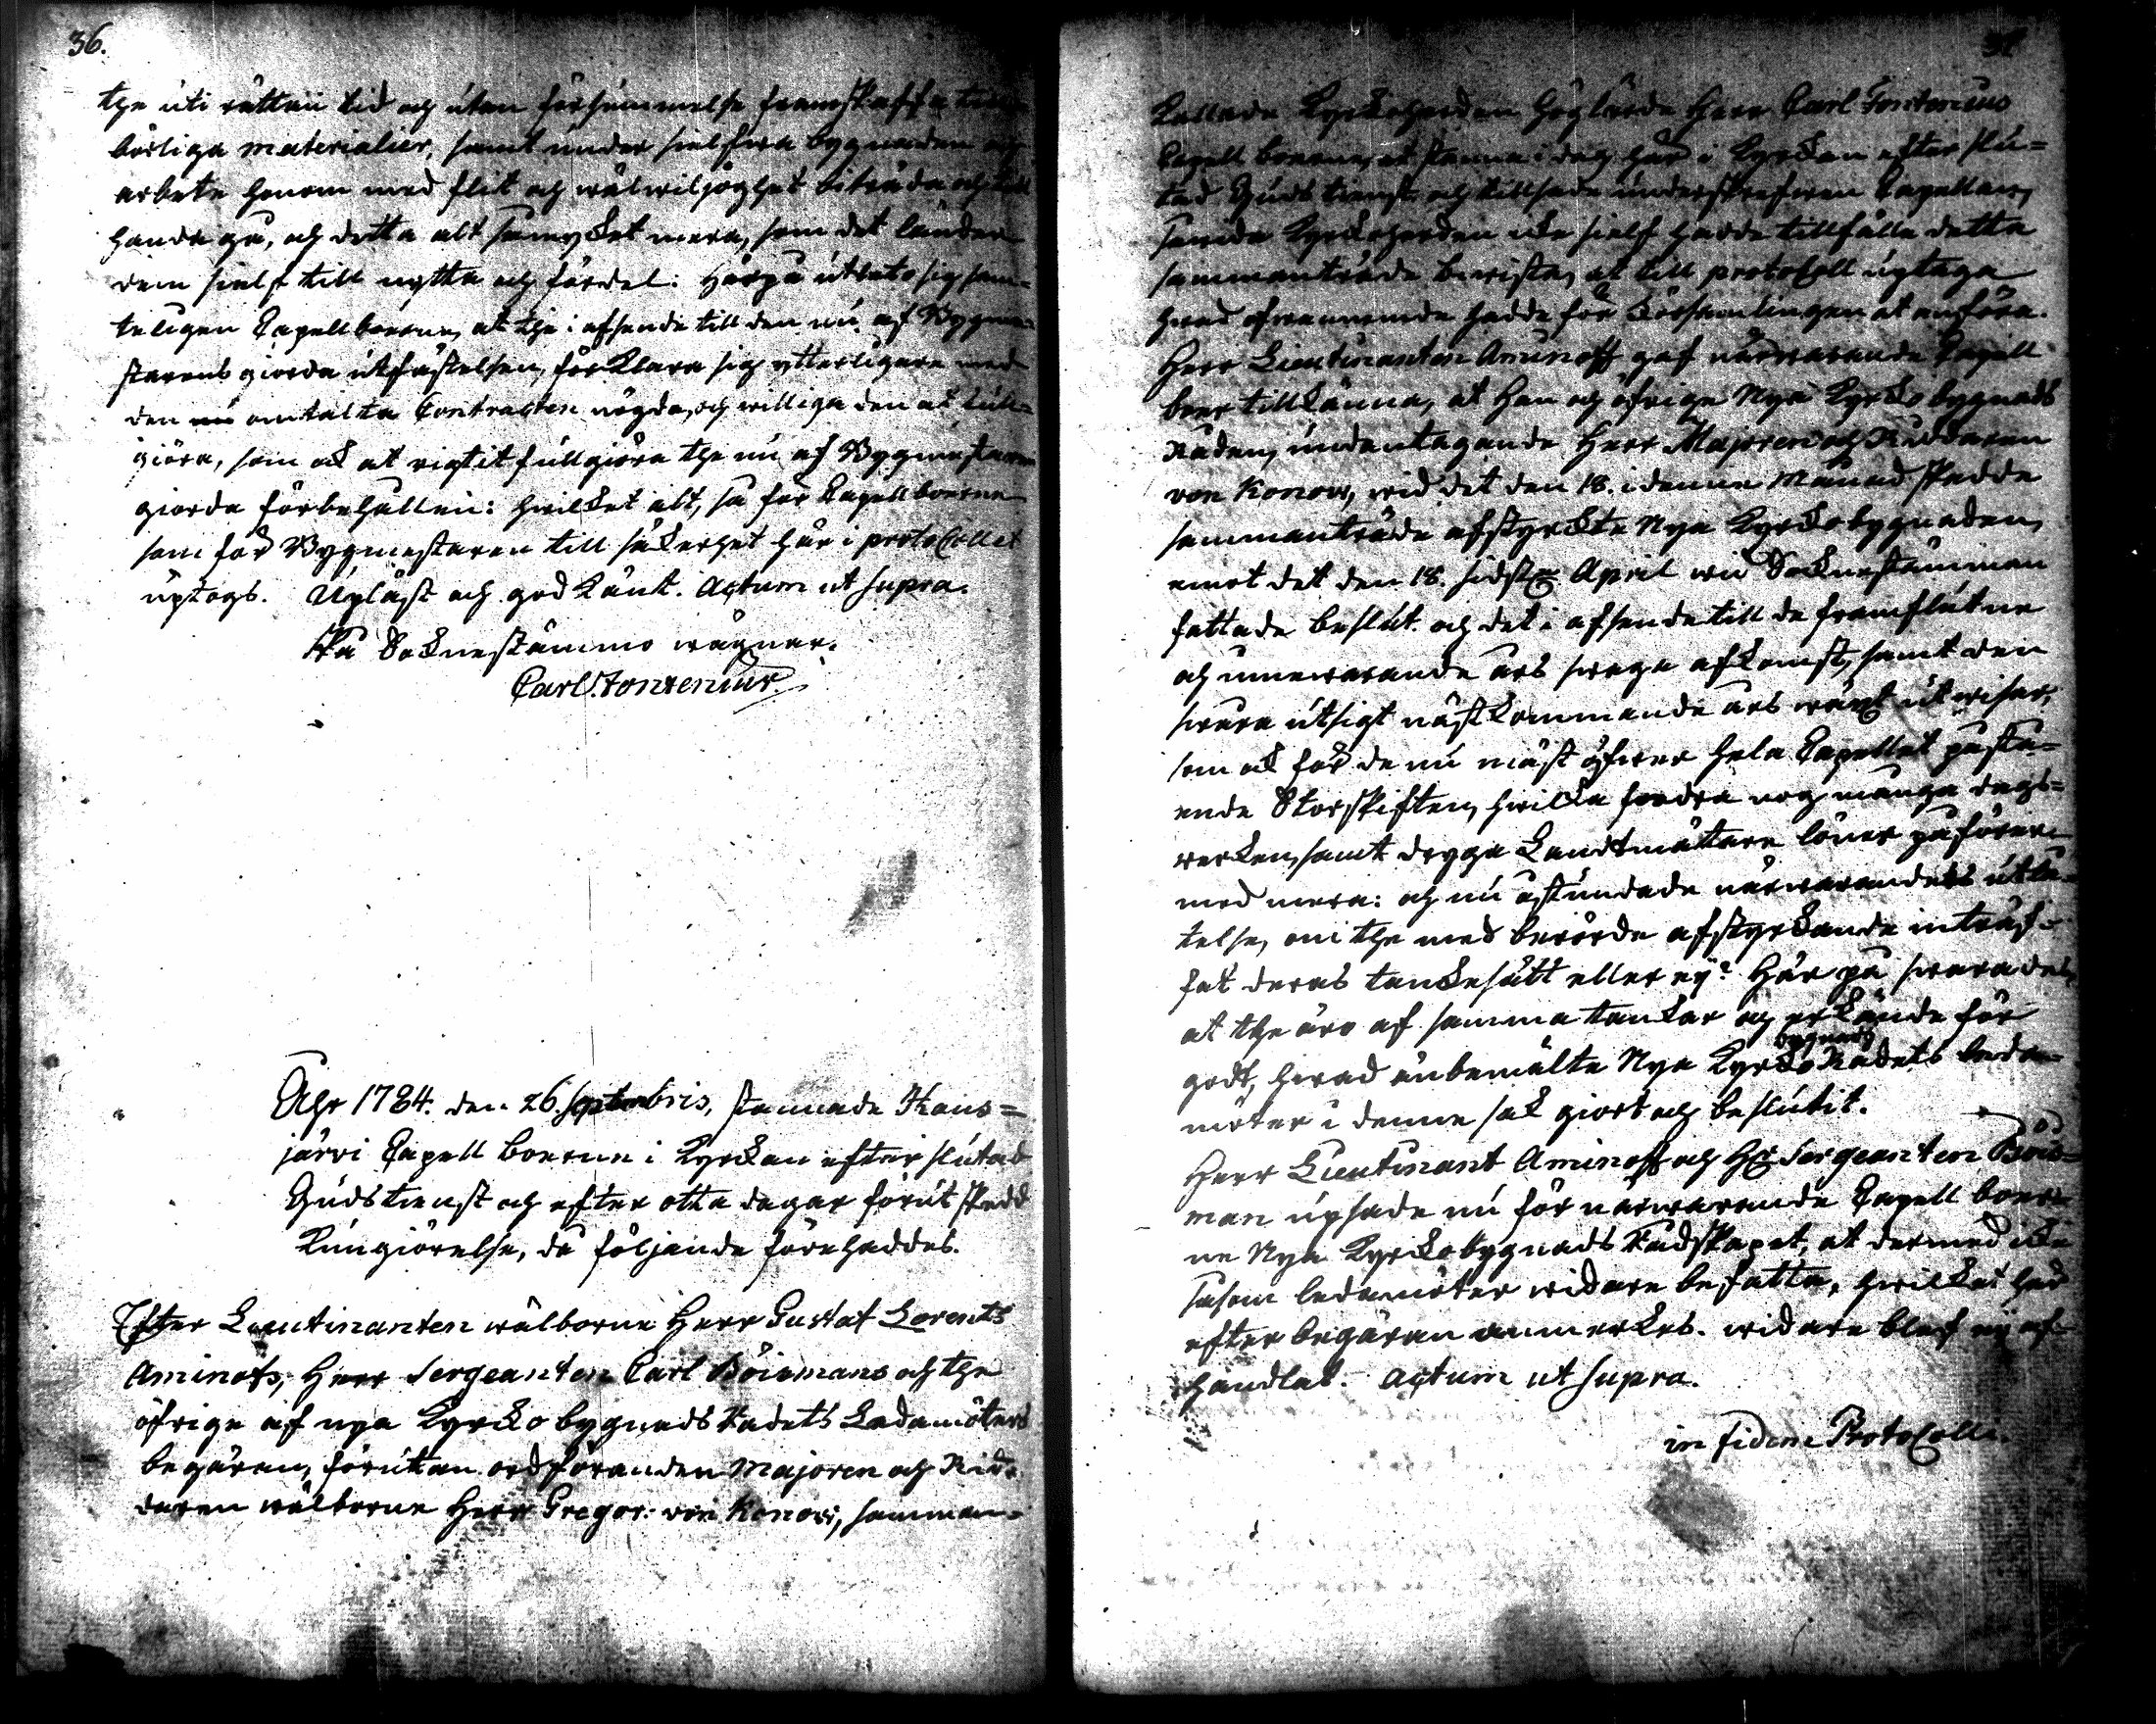 36.
the uti rättan tid och utan försummelse framskaffa till-
börliga materialier, samt under sielfwa bygnaden och
arbete honom med flit och wälwiljoghet biträda och till
handa gå, och detta alt så mycket mera, som det länder
dem sielf till nytta och fördel. Härpå utläto sig sam-
teligen Capellboerne, at the i afseende till den nu af Bygme-
starens giorda utfästelsen, förklara sig ytterligare med
den omtalta Contracten nögda, och williga den at full-
giöra, som ock at rigtit fullgiöra the nu af Bygmestaren
giorde förbehållen: hwilket alt, så för Capellboerne
som för Bygmestaren till säkerhet här i protocollet
uptogs. Upläst och godkänt. Actum ut supra.
På Sockne stämmo wägnar.
Carl Fontenius
Åhr 1784. den 26 Septembris, stannade Haus=
järvi Capell boerne i Kyrckan efter slutad
Gudstienst och efter otta dagar förut skedd
Kungiörelse, då följande förehaddes.
Efter Lieutinanten wälborne Herr Gustaf Lorents
Aminoffs, Herr Sergeanten Carl Böismans och the
öfrige af nya Kyrcko bygnads Rådets Ledamöters
begäran, förutan ordföranden Majoren och Rid-
daren wälborne Herr Gregor: von Konow, samman-
37
kallade Kyrckoherden Höglärde Herr Carl Fontenius
Capell boerne, at stanna i dag här i Kyrckan efter slu=
tad Gudstienst och tillsade underskrefwen Capellan,
Kyrckoherden icke sielf hade tillfälle detta
sammanträde bewista, at till protocoll uptaga
hwad ofwannemde hadde för Församlingen at anföra.
Herr Lieutinanten Aminoff gaf närwarande Capell
boer tillkänna, at Han och öfrige Nya Kyrcko bygnads
Råden, undantagande Herr Majoren och Riddaren
von Konow, wid det den 18. i denne Månad skedde
sammanträde afstyrckte Nya Kyrckobygnaden,
emot det den 18. sidstl. April wid Socknestämman
fattade beslut. och det i afseende till de framflutne
och innewarande års swaga afkomst, samt den
swåra utsigt nästkommande års wäxt utwisar,
som ock för de nu mäst öfwer hela Capellet påstå=
ende Storskiften, hwilka fordra nog många dags=
wercken, samt dryga Landtmätare löner påföra
med mera: och nu åstundade närwarandes utlå-
telse, om the med berörde afstyrckande inträf=
fat deras tanckesätt eller ej? Här på swarades,
at the äro af samma tanckar och erkände för
godt, hwad ånbemälte Nya Kyrcko bygnads Rådets leda-
möter i denne sak giort och beslutit.
Herr Lieutinant Aminoff och Hr Sergeanten Böis-
man upsade nu för närwarande Capell boer-
ne Nya Kyrckobygnads Rådskapet, at dermed icke
såsom ledamöter widare befatta, hwilket här
efter begäran anmerckes. widare blef ej af-
handlat. Actum ut supra.
in fidem Protocolli.